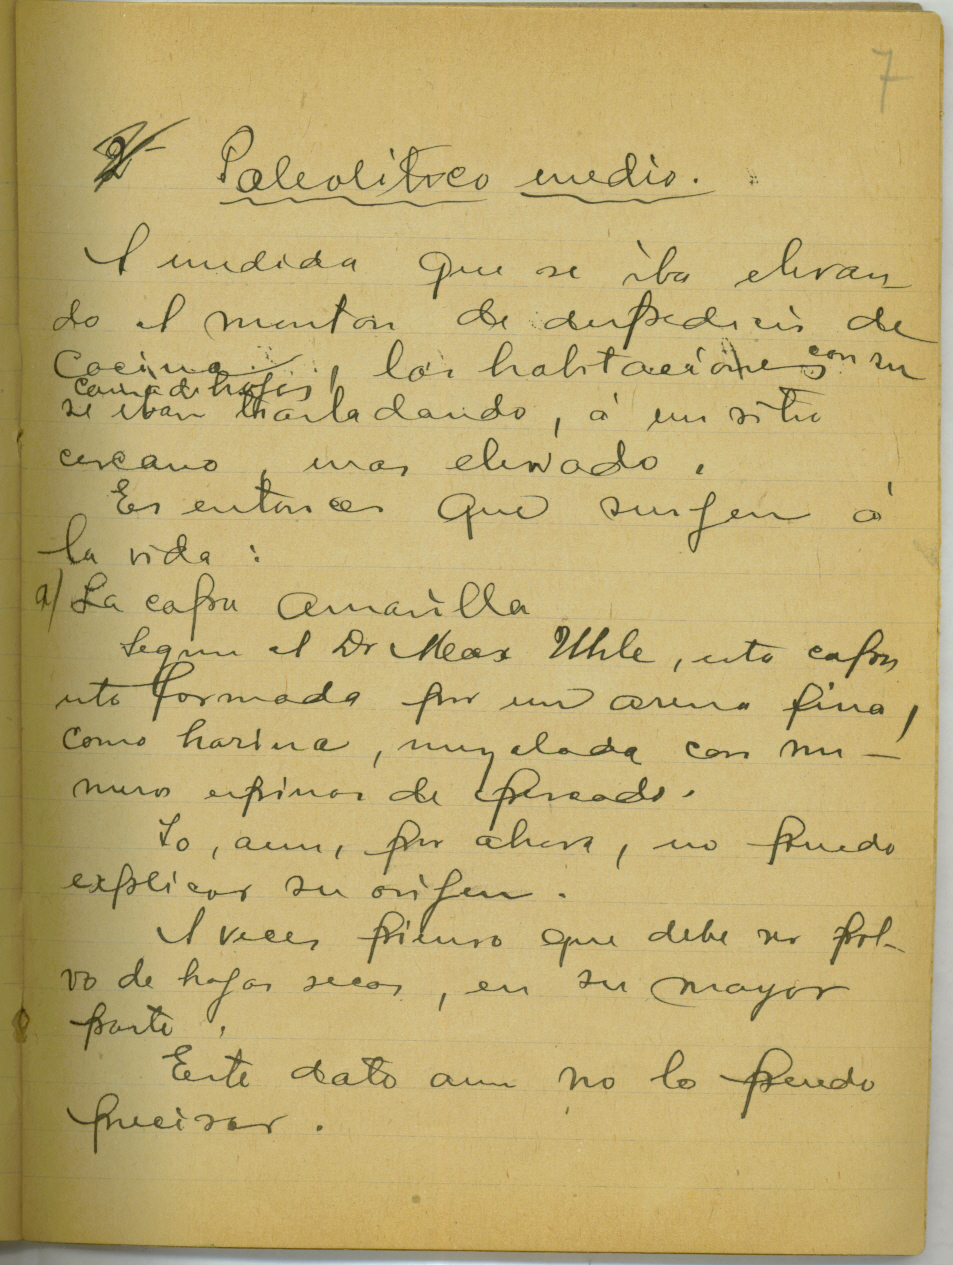 7
2- Paleolitico medio.
A medida que se iba elevan
do el monton de desperdicis de
cocina, las habitaciones con su
cama de hojas,
se iban trasladando, á un sitio
cercano, mas elevado.
Es entonces que surgen á
la vida:
a) La capa amarilla
Segun el Dr Max Uhle, esta capa
esta formada por una arena fina,
como harina, mezclada con nu-
meros espinas de pescado.
Yo, aun, por ahora, no puedo
explicar su origen.
A veces pienso que debe ser pol-
vo de hojas secas, en su mayor
parte.
Este dato aun no lo puedo
precisar.